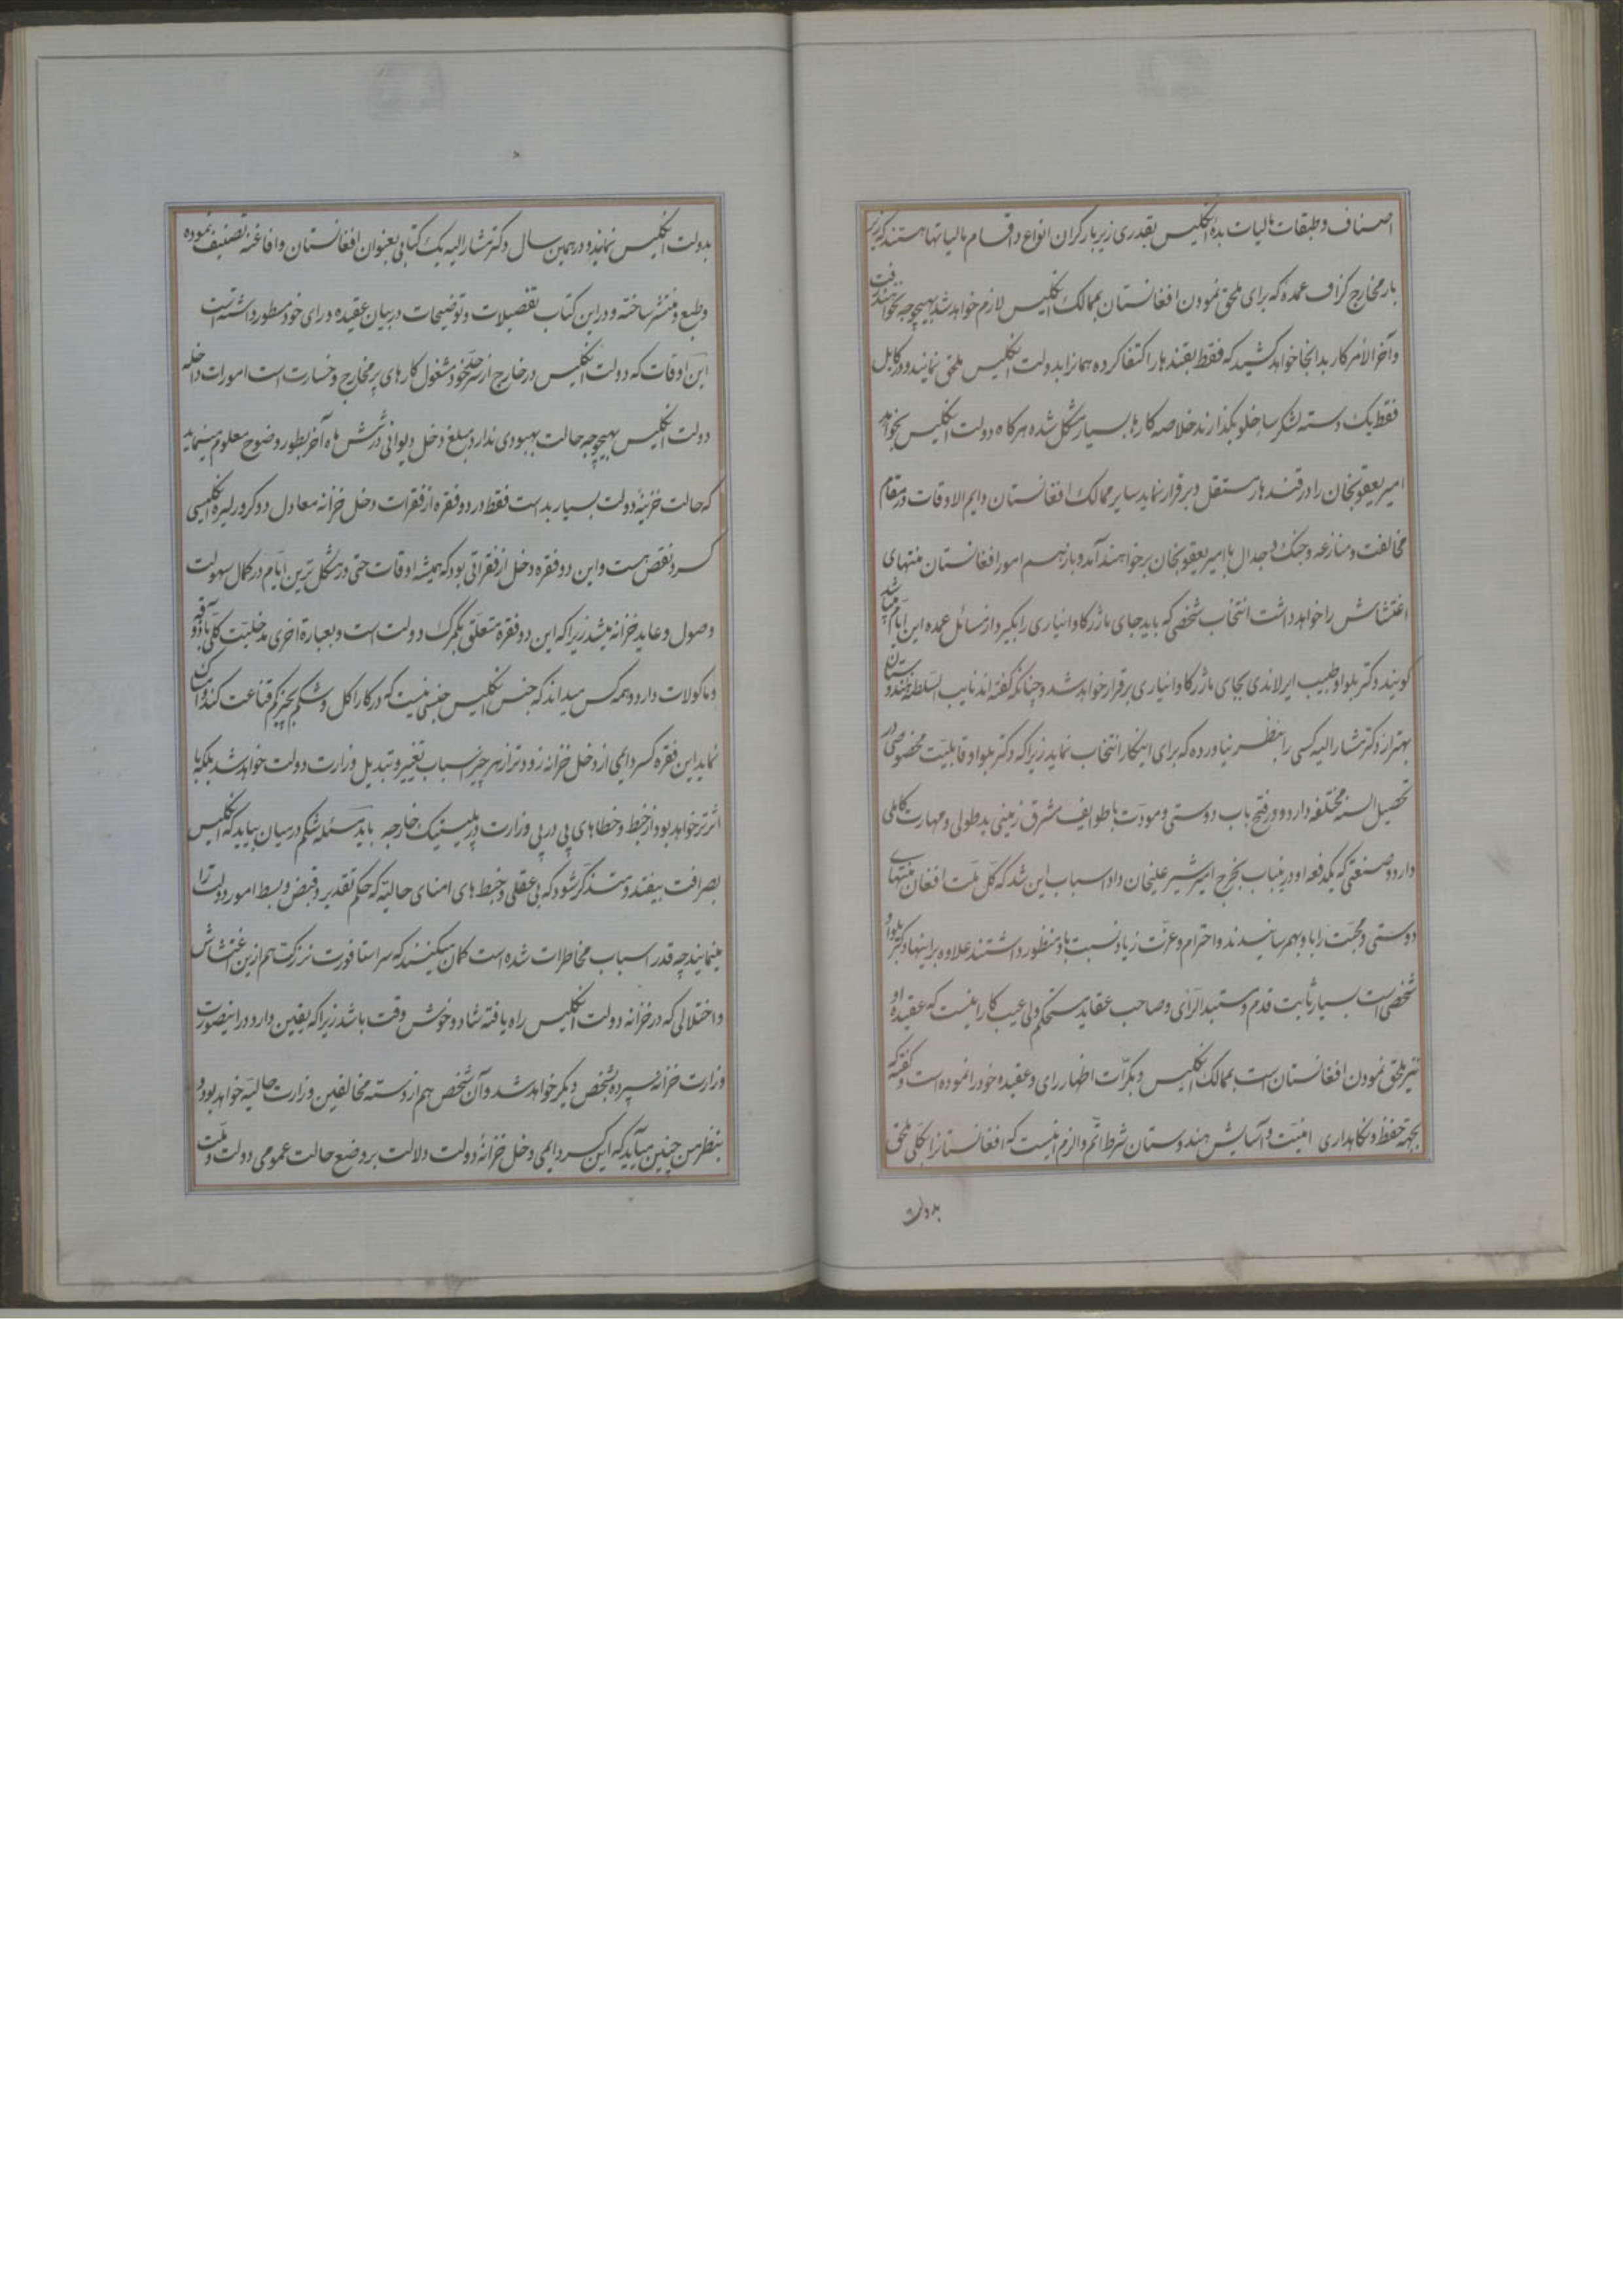 اصناف و طبقات مالیات بده انگلیس بقدری زیر بار گران انواع و اقسام مالیاتها هستند که زیر
بار مخارج گزاف عمده که برای ملحق نمودن افغانستان بممالک انگلیس لازم خواهد شد بهیچوجه نخواهند رفت
و آخرالامر کار بدانجا خواهد کشید که فقط بقندهار اکتفا کرده همانرا بدولت انگلیس ملحق نمایند و در کابل
فقط یک دسته لشکر ساخلو بگذارند خلاصه کارها بسیار مشکل شده هرگاه دولت انگلیس بخواهد
امیر یعقوبخان را در قندهار مستقل و برقرار نماید سایر ممالک افغانستان دایم الاوقات در مقام
مخالفت و منازعه و جنک و جدال با امیر یعقوبخان برخواهند آمد و باز هم امور افغانستان منتهای
اغتشاش را خواهد داشت انتخاب شخصی که باید جای ماژر کاوانیاری را بگیرد از مسائل عمده این ایام میباشد
گویند دکتر بلو او طبیب ایرلاندی بجای ماژر کاوانیاری برقرار خواهد شد و چنانکه گفته اند نایب السلطنه هندوستان
بهتر از دکتر مشارالیه کسی را بنظر نیاورده که برای اینکار انتخاب نماید زیرا که دکتر بلواو قابلیت مخصوصی در
تحصیل السنه مختلفه دارد و در فتح باب دوستی و مودت با طوایف مشرق زمینی ید طولی و مهارت کاملی
دارد و صنعتی که یکدفعه او درینباب بخرج امیر شیر علیخان داد اسباب این شد که کل ملت افغان منتهای
دوستی و محبت را با و بهم رسانیدند و احترام و عزت زیاد نسبت باو منظور داشتند علاوه بر اینها دکتر بلواو
شخصی است بسیار ثابت قدم و مستبد الرای و صاحب عقاید مستحکم ولی عیب کار اینست که عقیده او
نیز ملحق نمودن افغانستان است بممالک انگلیس و بکرات اظهار رای و عقیده خود را نموده است و گفته که
بجهة حفظ و نگاهداری امنیت و آسایش هندوستان شرط اتم و الزم اینست که افغانستانرا بکلی ملحق
بدولت
بدولت انگلیس نمایند و در همین سال دکتر مشارالیه یک کتابی بعنوان افغانستان و افاغنه تصنیف نموده
و طبع و منتشر ساخته و در این کتاب تفصیلات و توضیحات در بیان عقیده و رای خود مسطور داشته است
این اوقات که دولت انگلیس در خارج از سرحد خود مشغول کارهای پر مخارج و خسارت است امورات داخله
دولت انگلیس بهیچوجه حالت بهبودی ندارد مبلغ دخل دیوانی در شش ماه آخر بطور وضوح معلوم مینماید
که حالت خزینه دولت بسیار بد است فقط در دو فقره از فقرات دخل خزانه معادل دو کرور لیره انگلیسی
کسر و نقص هست و این دو فقره دخل از فقراتی بود که همیشه اوقات حتی در مشکل ترین ایام در کمال سهولت
وصول و عاید خزانه میشد زیرا که این دو فقره متعلق بگمرک دولت است و بعبارة اخری مدخلیت کلی باذوقه
و ماکولات دارد و همه کس میداند که جنس انگلیس جنسی نیست که در کار اکل و شکم بچیز کم قناعت کند و امساک
نماید این فقره کسر دایمی از دخل خزانه زودتر از هر چیز اسباب تغییر و تبدیل وزارت دولت خواهد شد بلکه با
اثرتر خواهد بود از خبط و خطاهای پی در پی وزارت در پلیتیک خارجه باید مسئله شکم در میان بیاید که انگلیس
بصرافت بیفتد و متذکر شود که بی عقلی و خبط های امنای حالیه که حکم تقدیر و قبض و بسط امور دولت را
مینمایند چه قدر اسباب مخاطرات شده است گمان میکنند که سر استافورت نرزکت هم ازین اغتشاش
و اختلالی که در خزانه دولت انگلیس راه یافته شاد و خوش وقت باشد زیرا که یقین دارد در اینصورت
وزارت خزانه سپرده بشخص دیگر خواهد شد و آن شخص هم از دسته مخالفین وزارت حالیه خواهد بود و
بنظر من چنین میآید که این کسر دایمی دخل خزانه دولت دلالت بر وضع حالت عمومی دولت و ملت